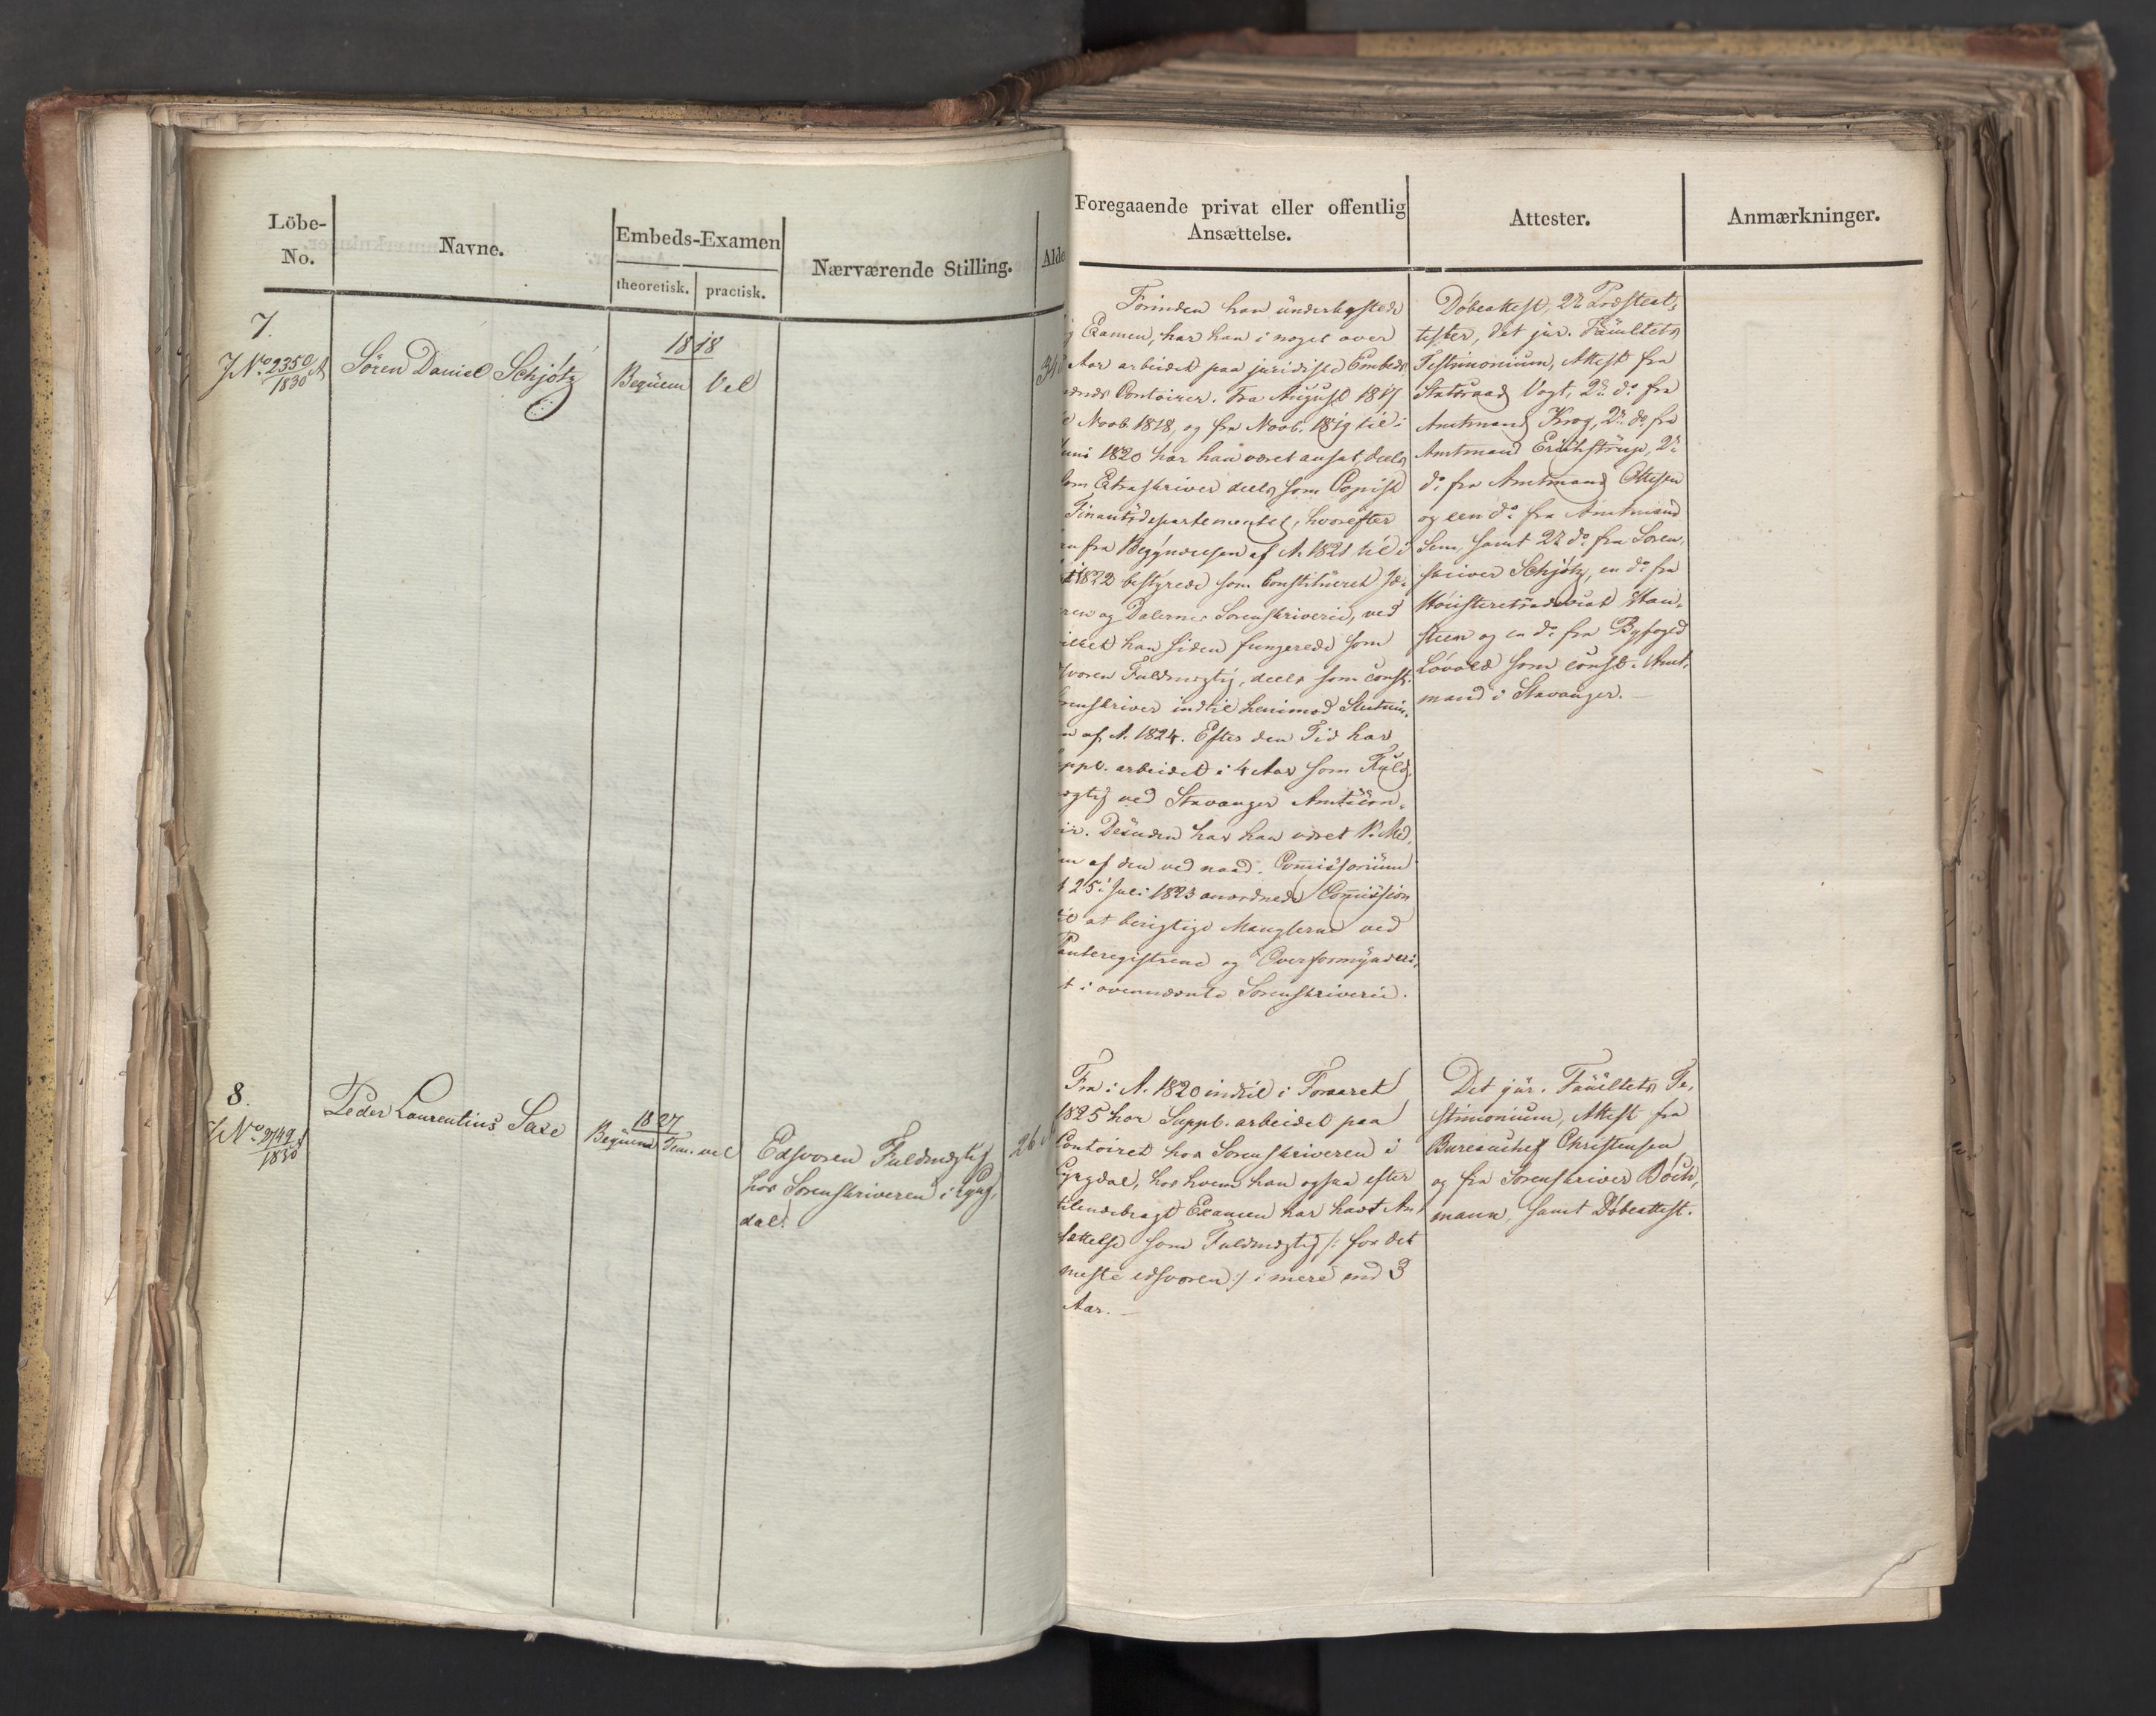 Löbe-
No.
Navne.
Embeds-Examen
theoretisk. practisk.
Nærværende Stilling.
Alde
7.
J N° 2350/1830 A
Sören Daniel Schjötz
1818
Beqüem Vel
34
8.
J N° 2149/1830
Peder Laurentius Saxe
1827
Beqüem Tem. vel
Edsvoren Fuldmægtig
hos Sorenskriveren i Lyng,
dal.
26
Foregaaende privat eller offentlig
Ansættelse.
Attester.
Anmærkninger.
Forinden han underkastede
g Examen, har han i noget over
Aar arbeidet paa juridiske Embeds
mænds Contoirer. Fra August 1817
Novb. 1818, og fra Novb. 1819 til i
uni 1820 har han været ansat, deels
som Extraskriver deels som Copist
Finantsdepartementet, hvorefter
an fra Begyndelsen af A. 1821 til i
1822 bestyrede som Constitueret Jæ-
ren og Dalernes Sorenskriverie, ved
vilket han siden fungerede som
dsvoren Fuldmægtig, deels som const.
orenskriver indtil henimod Slutnin,
n af A. 1824. Efter den Tid har
uppl. arbeidet i 4 Aar som Fuld,
ægtig ved Stavanger Amtscon-
ir. Desuden har han været Med,
em af den ved naad. Comissorium
25 Juli 1823 anordnede Comission
til at berigtige Manglerne ved
Panteregistrene og Overformynderi,
t i ovennævnte Sorenskriverie.
Döbeattest, 2de Præsteat,
tester, det jur. Facultets
Testimonium, Attest fra
Statsraad Vogt, 2de do fra
Amtmand Krog, 2de do fra
Amtmand Erichstrup, 2de
do fra Amtmand Ottesen
og een do fra Amtmand
Sem, samt 2de do fra Soren,
skriver Schjötz, en do fra
Höiesteretsadvocat Han-
steen og en do fra Byfoged
Lövold som const. Amt,
mand i Stavanger. —
Fra i A. 1820 indtil i Foraaret
1825 har Suppl. arbeidet paa
Contoiret hos Sorenskriveren i
Lyngdal, hos hvem han ogsaa efter
tilendebragt Examen har havt An,
sættelse som Fuldmægtig /: for det
meste edsvoren :/ i mere end 3
Aar. —
Det jur. Facultets Te,
stimonium, Attest fra
Bureauchef Christensen
og fra Sorenskriver Böch,
mann, samt Döbeattest.